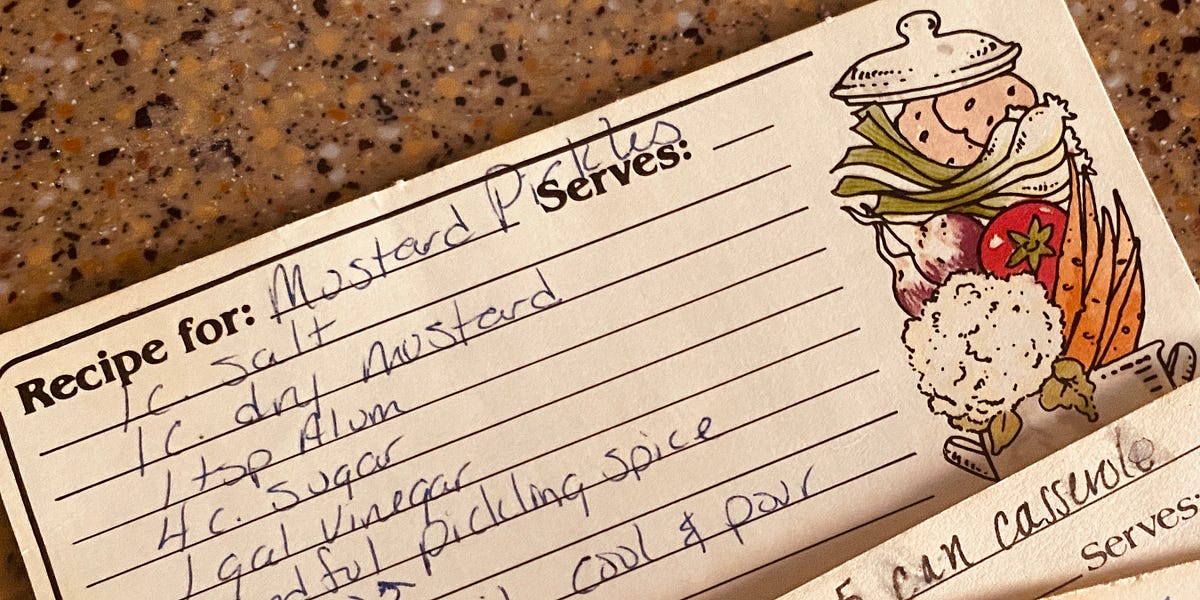 Recipe for: Mustard Pickles
Serves:
1 c. salt
1 c. dry mustard
1 tsp Alum
4 c. sugar
1 gal vinegar
pickling spice
cool & pour
5 can casserole
serves: